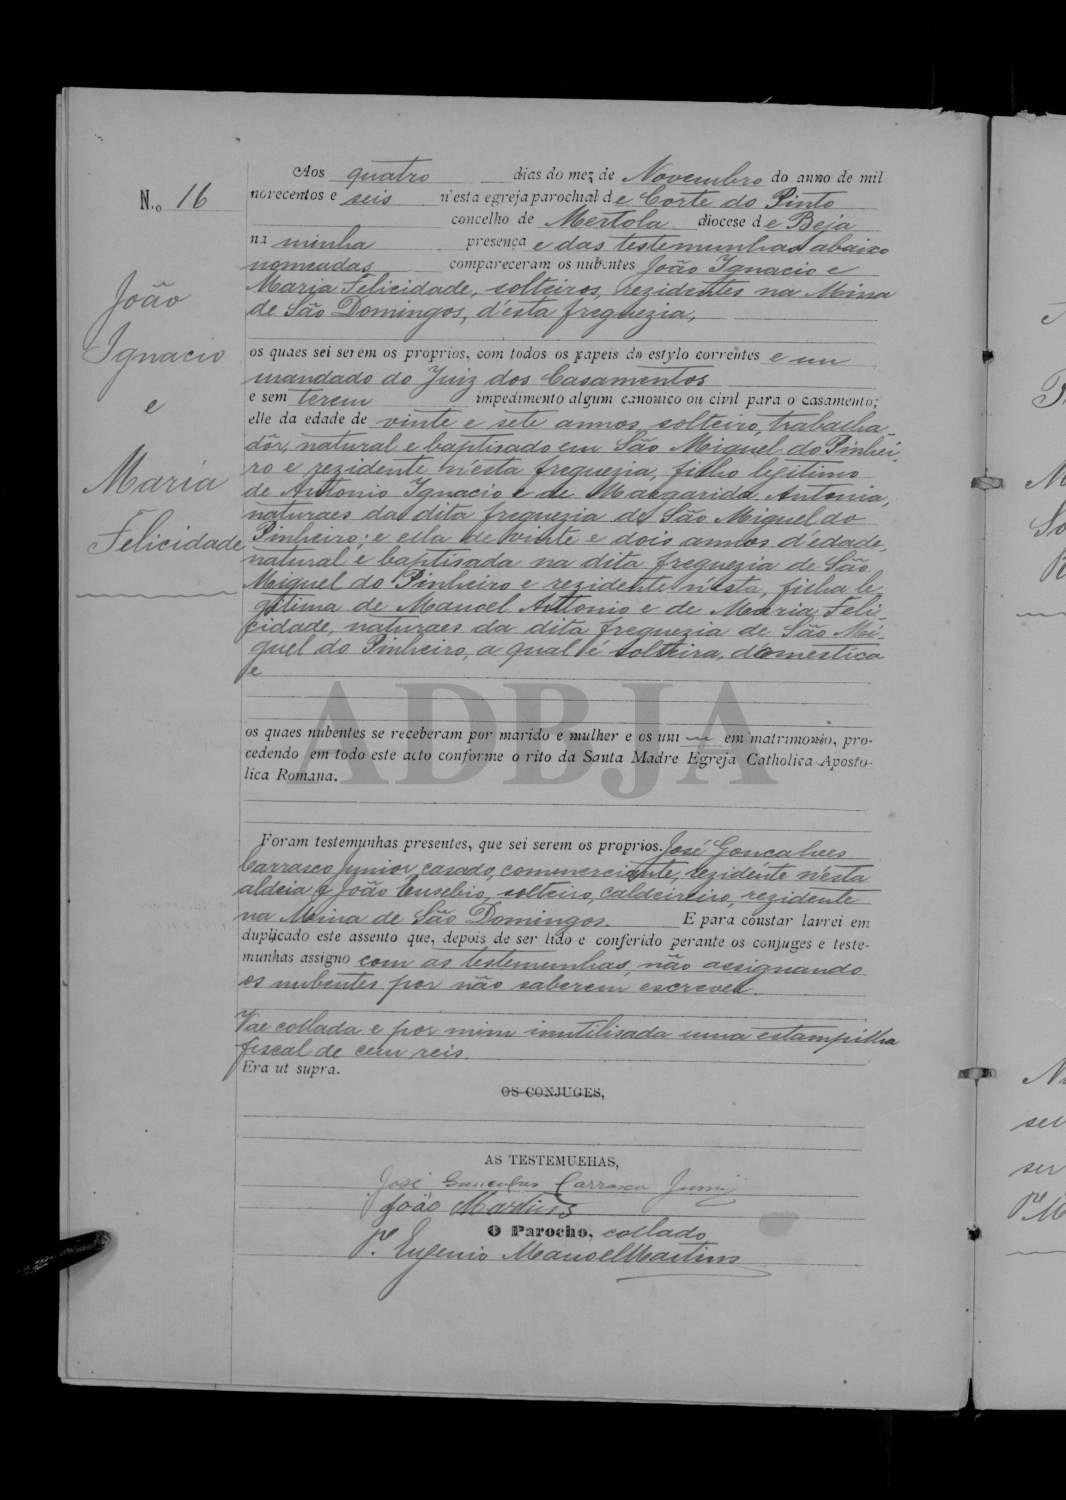 N.o 16
João
Ignacio
e
Maria
Felicidade
Aos quatro dias do mez de Novembro do anno de mil
novecentos e seis n'esta egreja parochial de Corte do Pinto
concelho de Mertola diocese de Beja
na minha presença e das testemunhas abaixo
nomeadas compareceram os nubentes João Ignacio e
Maria Felicidade, solteiros, rezidentes na Mina
de São Domingos, d'esta freguezia,
os quaes sei serem os proprios, com todos os papeis do estylo correntes e um
mandado do Juiz dos Casamentos
e sem terem impedimento algum canonico ou civil para o casamento;
elle da edade de vinte e sete annos, solteiro, trabalha-
dôr, natural e baptisado em São Miguel do Pinhei-
ro e rezidente n'esta freguezia, filho legitimo
de Antonio Ignacio e de Margarida Antonia,
naturaes da dita freguezia de São Miguel do
Pinheiro; e ella de vinte e dois annos d'edade,
natural e baptisada na dita freguezia de São
Miguel do Pinheiro e rezidente n'esta, filha le-
gitima de Manoel Antonio e de Maria Feli-
cidade, naturaes da dita freguezia de São Mi-
guel do Pinheiro, a qual é solteira, domestica
e
ADBJA
os quaes nubentes se receberam por marido e mulher e os uni em matrimonio, pro-
cedendo em todo este acto conforme o rito da Santa Madre Egreja Catholica Aposto-
lica Romana.
Foram testemunhas presentes, que sei serem os proprios. José Goncalves
Carrasco Junior, casado, commerciante, rezidente n'esta
aldeia e João Eusebio, solteiro, caldeireiro, rezidente
na Mina de São Domingos. E para constar lavrei em
duplicado este assento que, depois de ser lido e conferido perante os conjuges e teste-
munhas assigno com as testemunhas, não assignando
os nubentes por não saberem escrever.
Vae collada e por mim inutilisada uma estampilha
fiscal de cem reis.
Era ut supra.
OS CONJUGES,
AS TESTEMUEHAS,
José Goncalves Carrasco Junior
João Martins
O Parocho, collado
Pe. Eugenio Manoel Martins